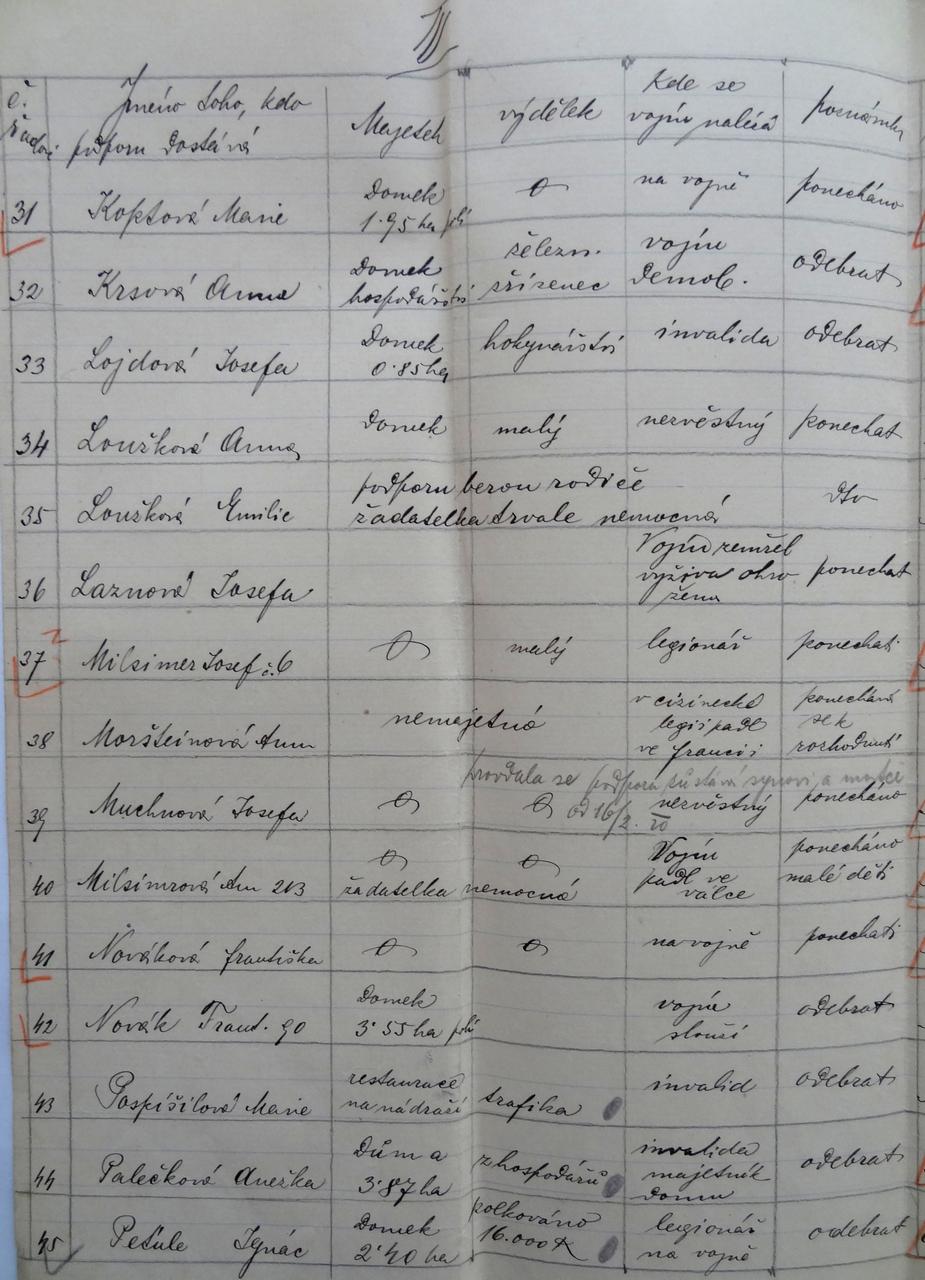 III
č. řadové
Jméno toho, kdo podporu dostává
Majetek
výdělek
Kde se vojín nalézá
poznámka
31 Koptová Marie Domek 1·95 ha polí 0 na vojně ponecháno
32 Krsová Anna Domek hospodářství železn. zřízenec vojín demob. odebrat
33 Lojdová Josefa Domek 0·85 ha hokynářství invalida odebrat
34 Loužková Anna Domek malý nezvěstný ponechat
35 Loužková Emilie podporu berou rodiče žadatelka trvale nemocná dto
36 Laznová Josefa Vojín zemřel výživa ohrožena ponechat
37 Milsimer Josef č. 6 0 malý legionář ponechati
38 Moršteinová Ann nemajetná v cizinecké legii padl ve Francii ponechává se k rozhodnutí
provdala se podpora zůstává synovi a matce
od 16/2. 20
39 Muchnová Josefa 0 0 nezvěstný ponecháno
40 Milsimrová An 213 0 0 žadatelka nemocná Vojín padl ve válce ponecháno malé děti
41 Nováková Františka 0 0 na vojně ponechati
42 Novák Frant. 90 Domek 3·55 ha polí vojín slouží odebrat
43 Pospíšilová Marie restaurace na nádraží trafika invalid odebrat
44 Palečková Anežka Dům a 3·87 ha z hospodářů invalida majetník domu odebrat
45 Peťule Ignác Domek 2·40 ha 16.000 K legionář na vojně odebrat